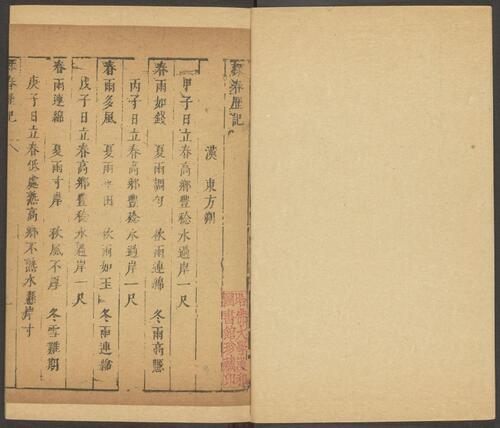 探春歷記
漢 東方朔
甲子日立春高鄉豐稔水過岸一尺
春雨如錢 夏雨調勻 秋雨連綿 冬雨高懸
丙子日立春高鄉豐稔水過岸一尺
春雨多風 夏雨 田 秋雨如玉 冬雨連綿
戊子日立春高鄉豐稔水過岸一尺
春雨連綿 夏雨寸岸 秋風不厚 冬雪難期
庚子日立春低處熟高鄉不熟水懸岸寸
探春歷記 八
哈佛大學漢和
圖書館珍藏印